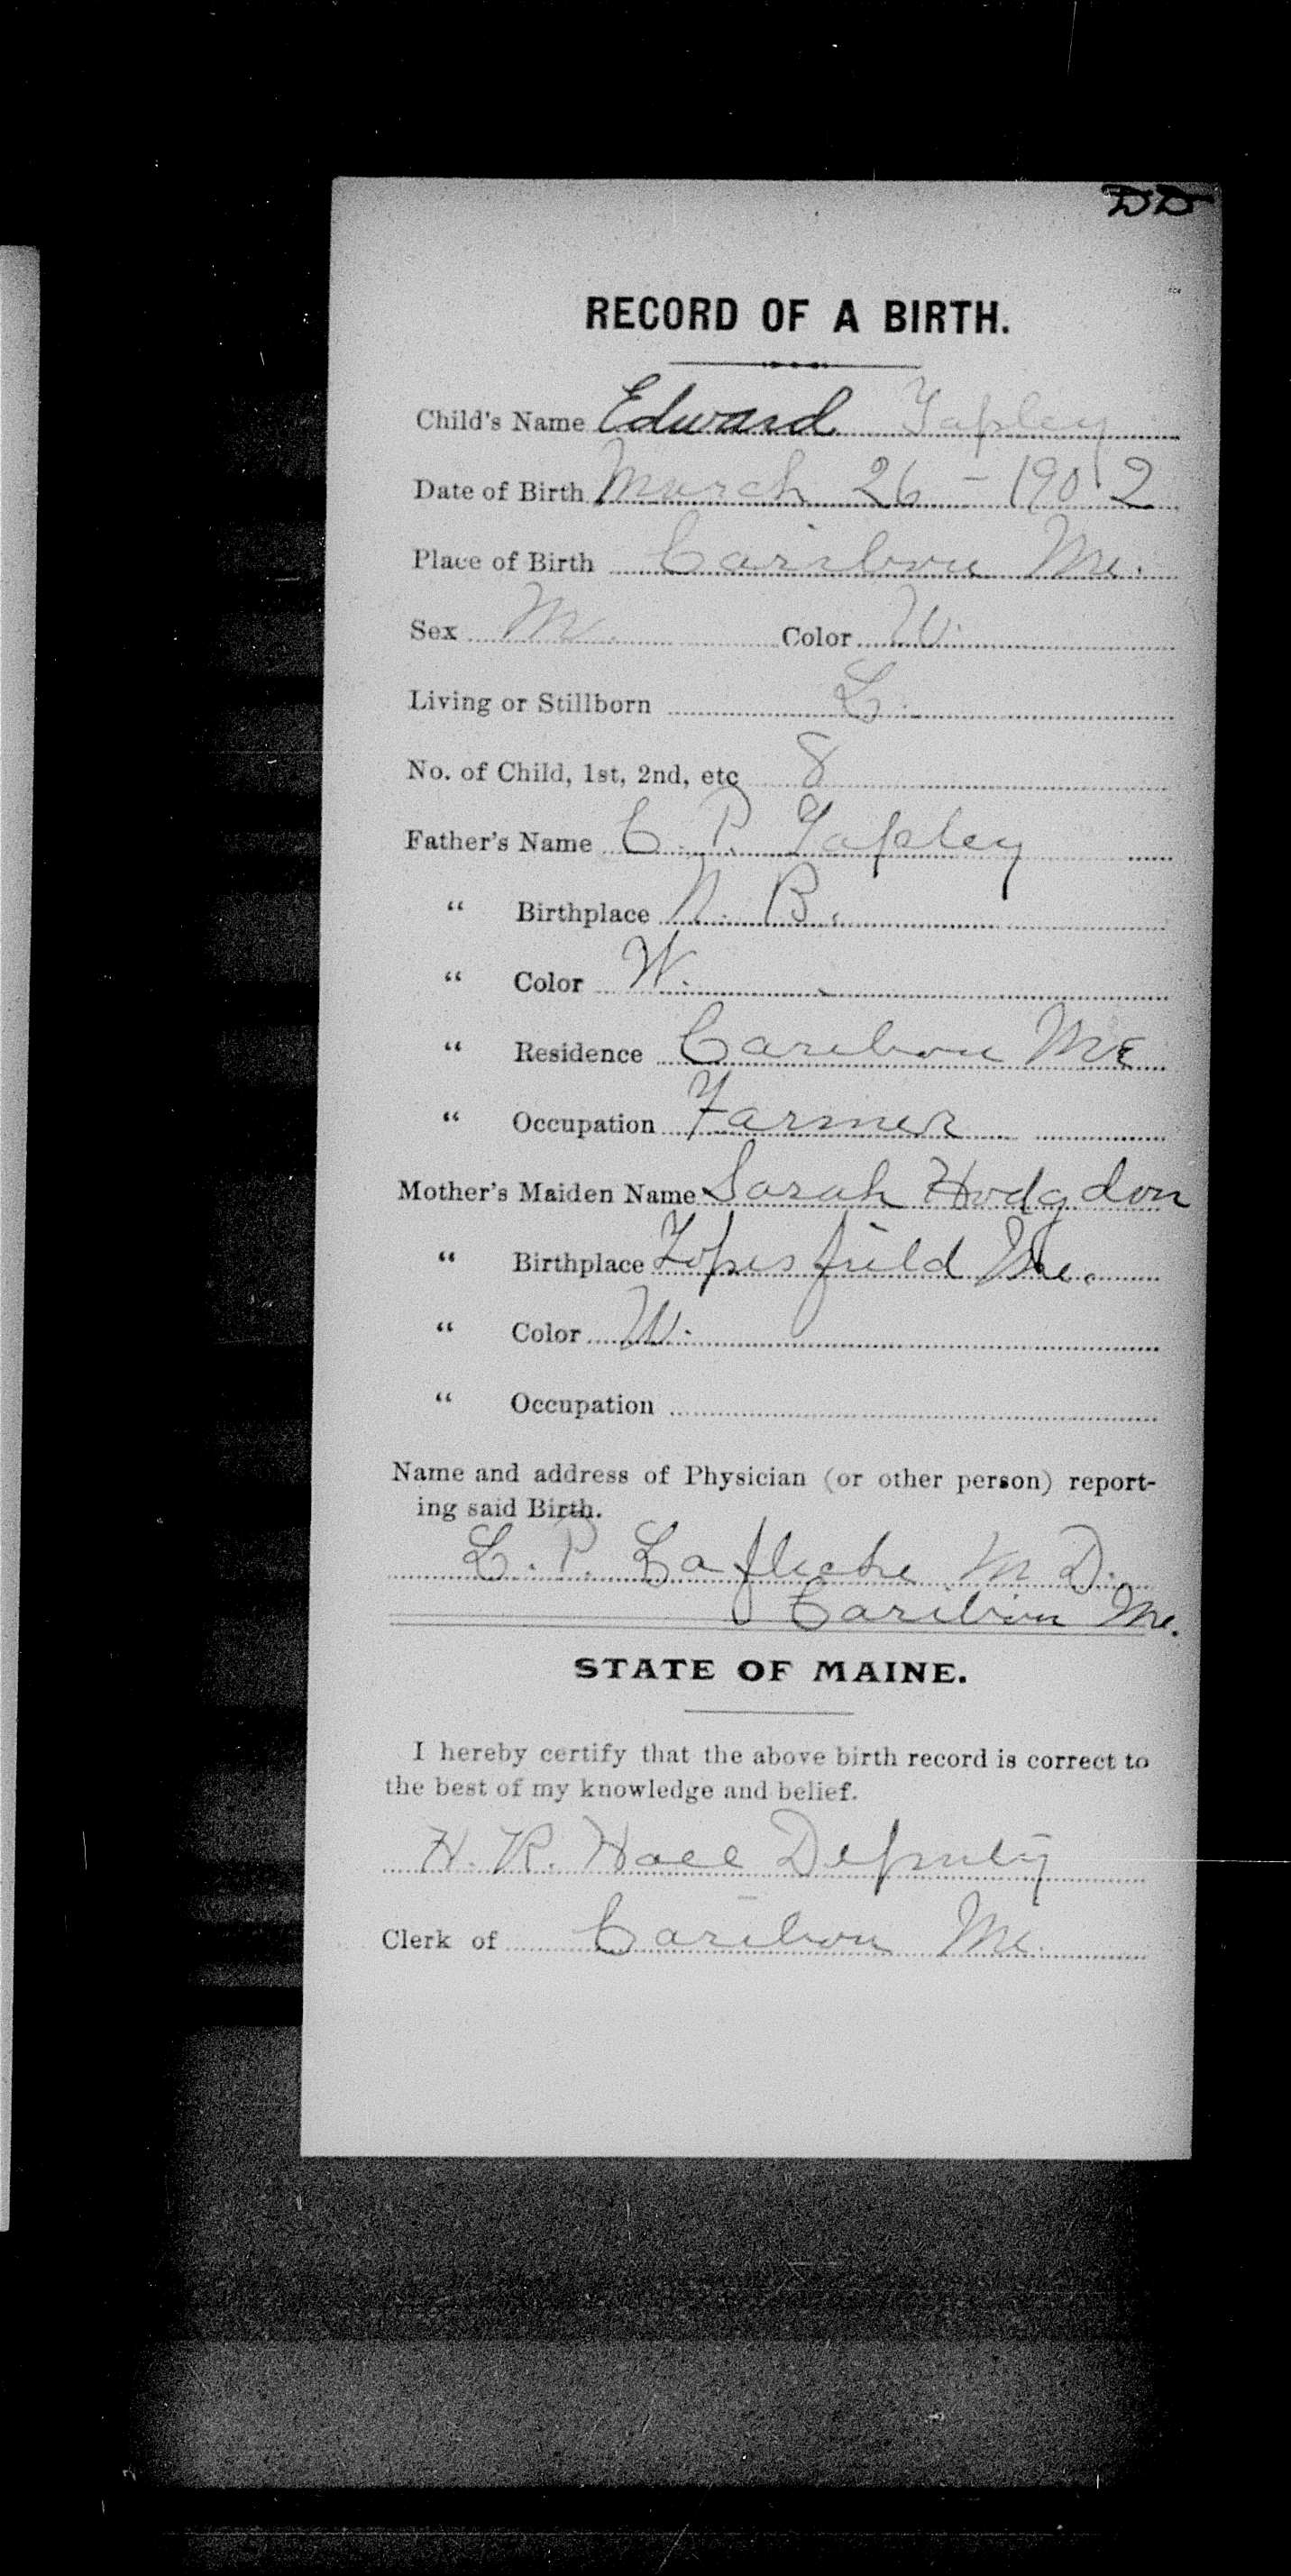 DD
RECORD OF A BIRTH.
Child's Name Edward Tapley
Date of Birth March 26 - 1902
Place of Birth Caribou Me.
Sex M. Color W.
Living or Stillborn L.
No. of Child, 1st, 2nd, etc 8
Father's Name C. P. Tapley
“ Birthplace N. B.
“ Color W.
“ Residence Caribou Me
“ Occupation Farmer
Mother's Maiden Name Sarah Hodgdon
“ Birthplace Topsfield Me.
“ Color W.
“ Occupation
Name and address of Physician (or other person) report-
ing said Birth.
L. P. Lafleche M D.
Caribou Me.
STATE OF MAINE.
I hereby certify that the above birth record is correct to
the best of my knowledge and belief.
H. R. Hall Deputy
Clerk of Caribou Me.